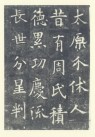 太原介休人
昔有周氏積
德累功慶流
長世分星判